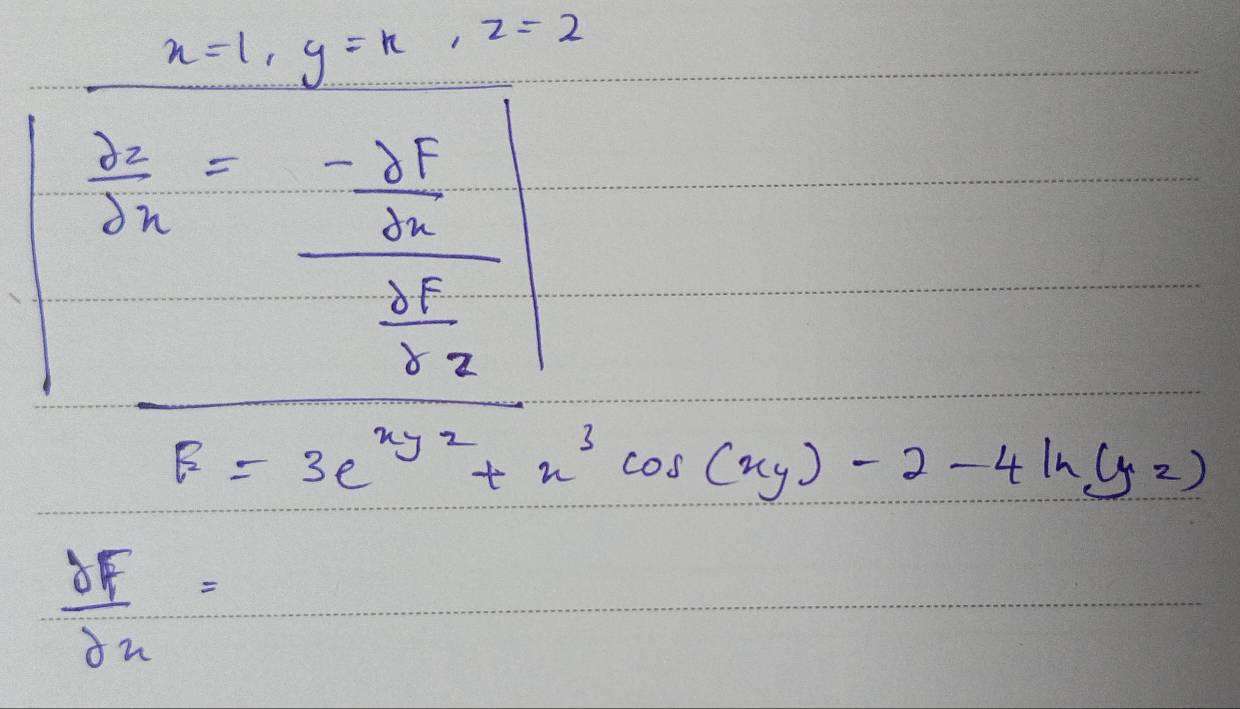 x=1, y=π, z=2
∂z/∂x = (-∂F/∂x)/(∂F/∂z)
F = 3e^{xyz} + x^3 cos(xy) - 2 - 4 ln(yz)
∂F/∂x =